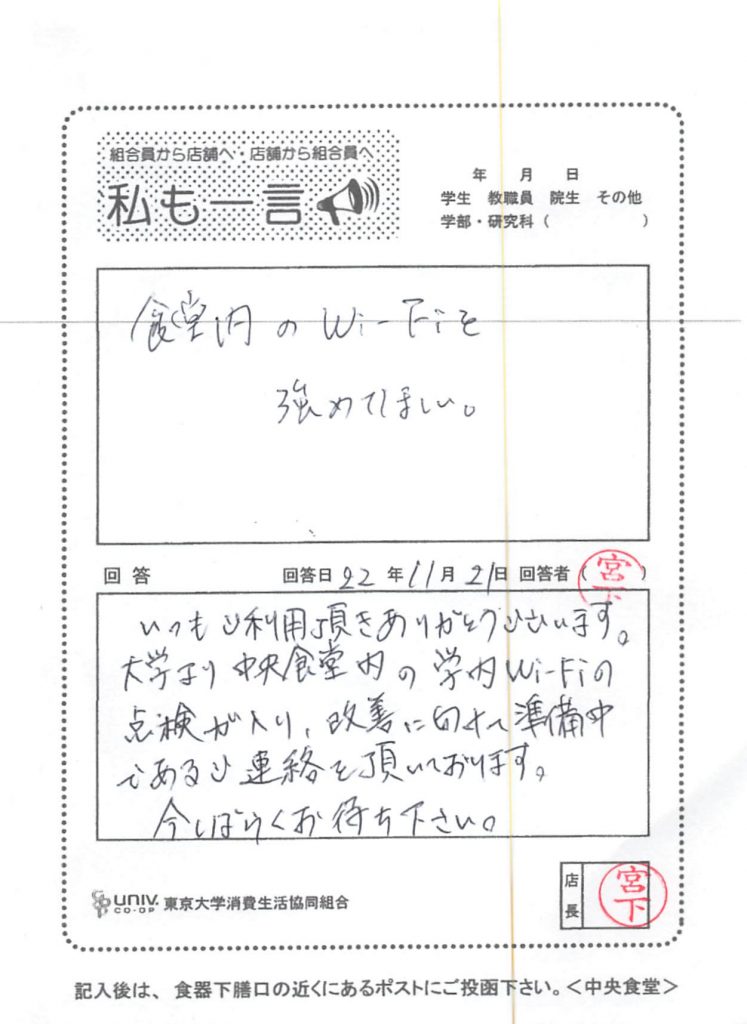 組合員から店舗へ・店舗から組合員へ
私も一言
年 月 日
学生 教職員 院生 その他
学部・研究科 ( )
食堂内の Wi-Fiを
強めてほしい。
回答 回答日 22 年 11 月 21 日 回答者 ( 宮下 )
いつもご利用頂きありがとうございます。
大学より中央食堂内の学内Wi-Fiの
点検が入り、改善に向けて準備中
であるご連絡を頂いております。
今しばらくお待ち下さい。
店長 宮下
UNIV. CO-OP 東京大学消費生活協同組合
記入後は、食器下膳口の近くにあるポストにご投函下さい。<中央食堂>